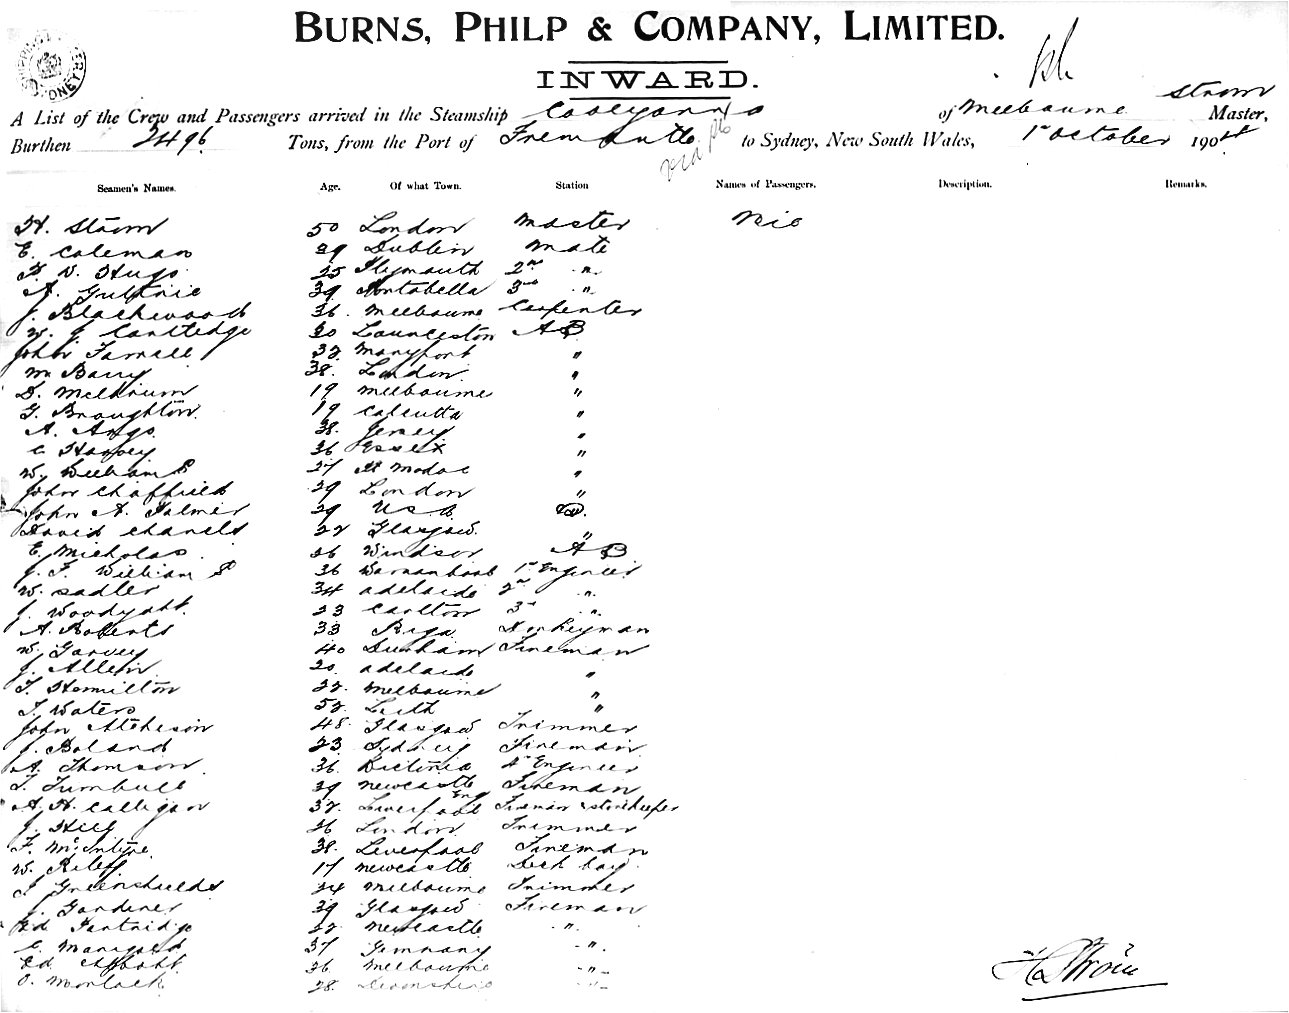 BURNS, PHILP & COMPANY, LIMITED.
INWARD.
A List of the Crew and Passengers arrived in the Steamship Cooeyanna of Melbourne Strom Master,
Burthen 2496 Tons, from the Port of Fremantle to Sydney, New South Wales, 1st October 1904
Seamen's Names. Age. Of what Town. Station Names of Passengers. Description. Remarks.
H. Strom 50 London Master Nil
E. Coleman 39 Dublin Mate
F. V. Hugo 25 Plymouth 2nd "
A. Guthrie 39 Portabella 3rd "
J. Blackwood 36 Melbourne Carpenter
W. J. Canttedge 30 Launceston AB
John Farrall 32 Maryport "
M Barry 38 London "
D. 19 Melbourne "
G. Broughton 19 Calcutta "
A. Ango 38 Jersey "
C Harvey 36 Essex "
W. Williams 27 "
John Chaffield 29 London "
John A. Palmer 29 USA
David Charels 22 Glasgow "
E. Nicholas 26 Windsor AB
J. F. Williams 36 Warnambool 1st Engineer
W. Sadler 34 Adelaide 2nd "
J. Woodyatt 23 Carlton 3rd "
A. Roberts 33 Riga Donkeyman
W. Garvey 40 Durham Fireman
J. Allen 20 Adelaide "
T. Hamilton 22 Melbourne "
T. Waters 52 Leith "
John Atcheson 48 Glasgow Trimmer
J. Boland 23 Sydney Fireman
A. Thomson 36 Victoria 4th Engineer
T. Turnbull 39 Newcastle Eng Fireman
A. H. Calligan 32 Liverpool Fireman & Storekeeper
J. Hill 26 London Trimmer
F. McIntyre 38 Liverpool Fireman
W. Riley 17 Newcastle Deck boy
J Greenshields 24 Melbourne Trimmer
J. Gardener 39 Glasgow Fireman
Ed Partridge 22 Newcastle "
C. Marigold 37 Germany "
Ed. Abbott 26 Melbourne "
O. Morlock 28 Devonshire "
H Ström